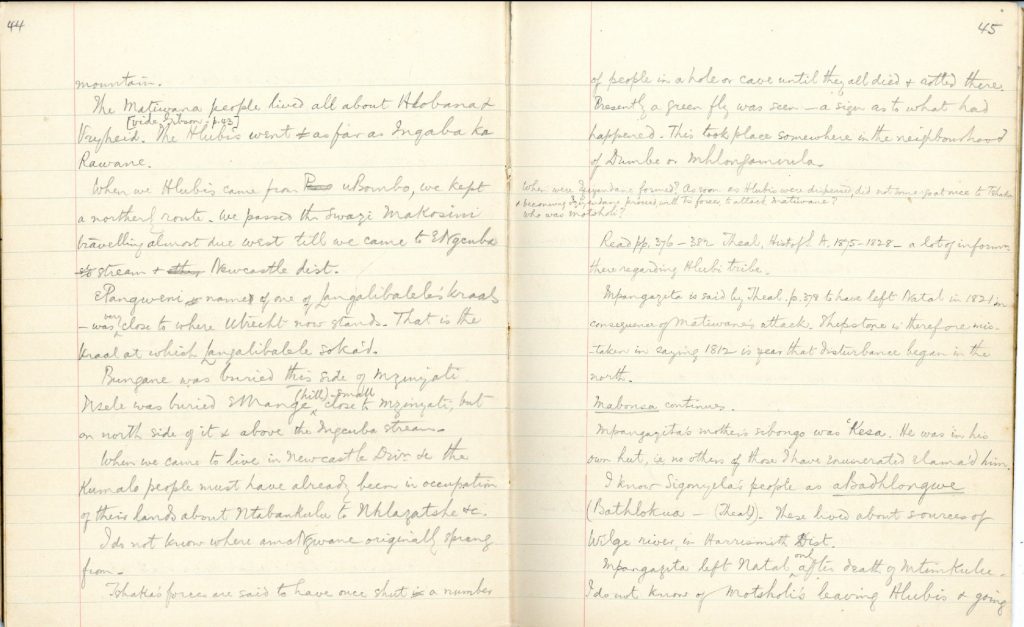 44
mountain.
The Matiwana people lived all about Hlobana &
[vide Gibson. p. 92]
Vryheid. The Hlubis went & as far as Ingaba ka
Rawane.
When we Hlubis came from uBombo, we kept
a northerly route. We passed the Swazi Makosini
travelling almost due west till we came to ENgcuba
stream & Newcastle dist.
EPangweni name of one of Langalibalele's kraals
– was very close to where Utrecht now stands. That is the
kraal at which Langalibalele soka'd.
Bungane was buried this side of Mzinyati.
Nsele was buried EMange (hill) – small close to Mzinyati, but
on north side of it & above the Ingcuba stream.
When we came to live in Newcastle Divn &c the
Kumalo people must have already been in occupation
of their lands about Ntabankulu to Nhlazatshe &c.
I do not know where amaNgwane originally sprang
from.
Tshaka's forces are said to have once shut a number
45
of people in a hole or cave until they all died & rotted there.
Presently a green fly was seen – a sign as to what had
happened. This took place somewhere in the neighbourhood
of Dumbe or Mhlongamvula.
When were formed? As soon as Hlubis were dispersed, did not some go at once to Tshaka
& becoming proceed with Ts forces to attack Matiwane?
who was Motsholi?
Read pp. 376 – 382 Theal, Hist of S. A. 1795–1828 – a lot of inform
there regarding Hlubi tribe.
Mpangazita is said by Theal. p. 378 to have left Natal in 1821 in
consequence of Matiwane's attack. Shepstone is therefore mis-
taken in saying 1812 is year that disturbance began in the
north.
Mabonsa continues.
Mpangazita's mother's sibongo was 'Kesa. He was in his
own hut, i.e. no others of those I have enumerated elama'd him.
I know Sigonyela's people as aBadhlongwe
(Bathlokua – (Theal)). These lived about sources of
Wilge river, in Harrismith Dist.
Mpangazita left Natal only after death of Mtimkulu.
I do not know of Motsholi's leaving Hlubis & going